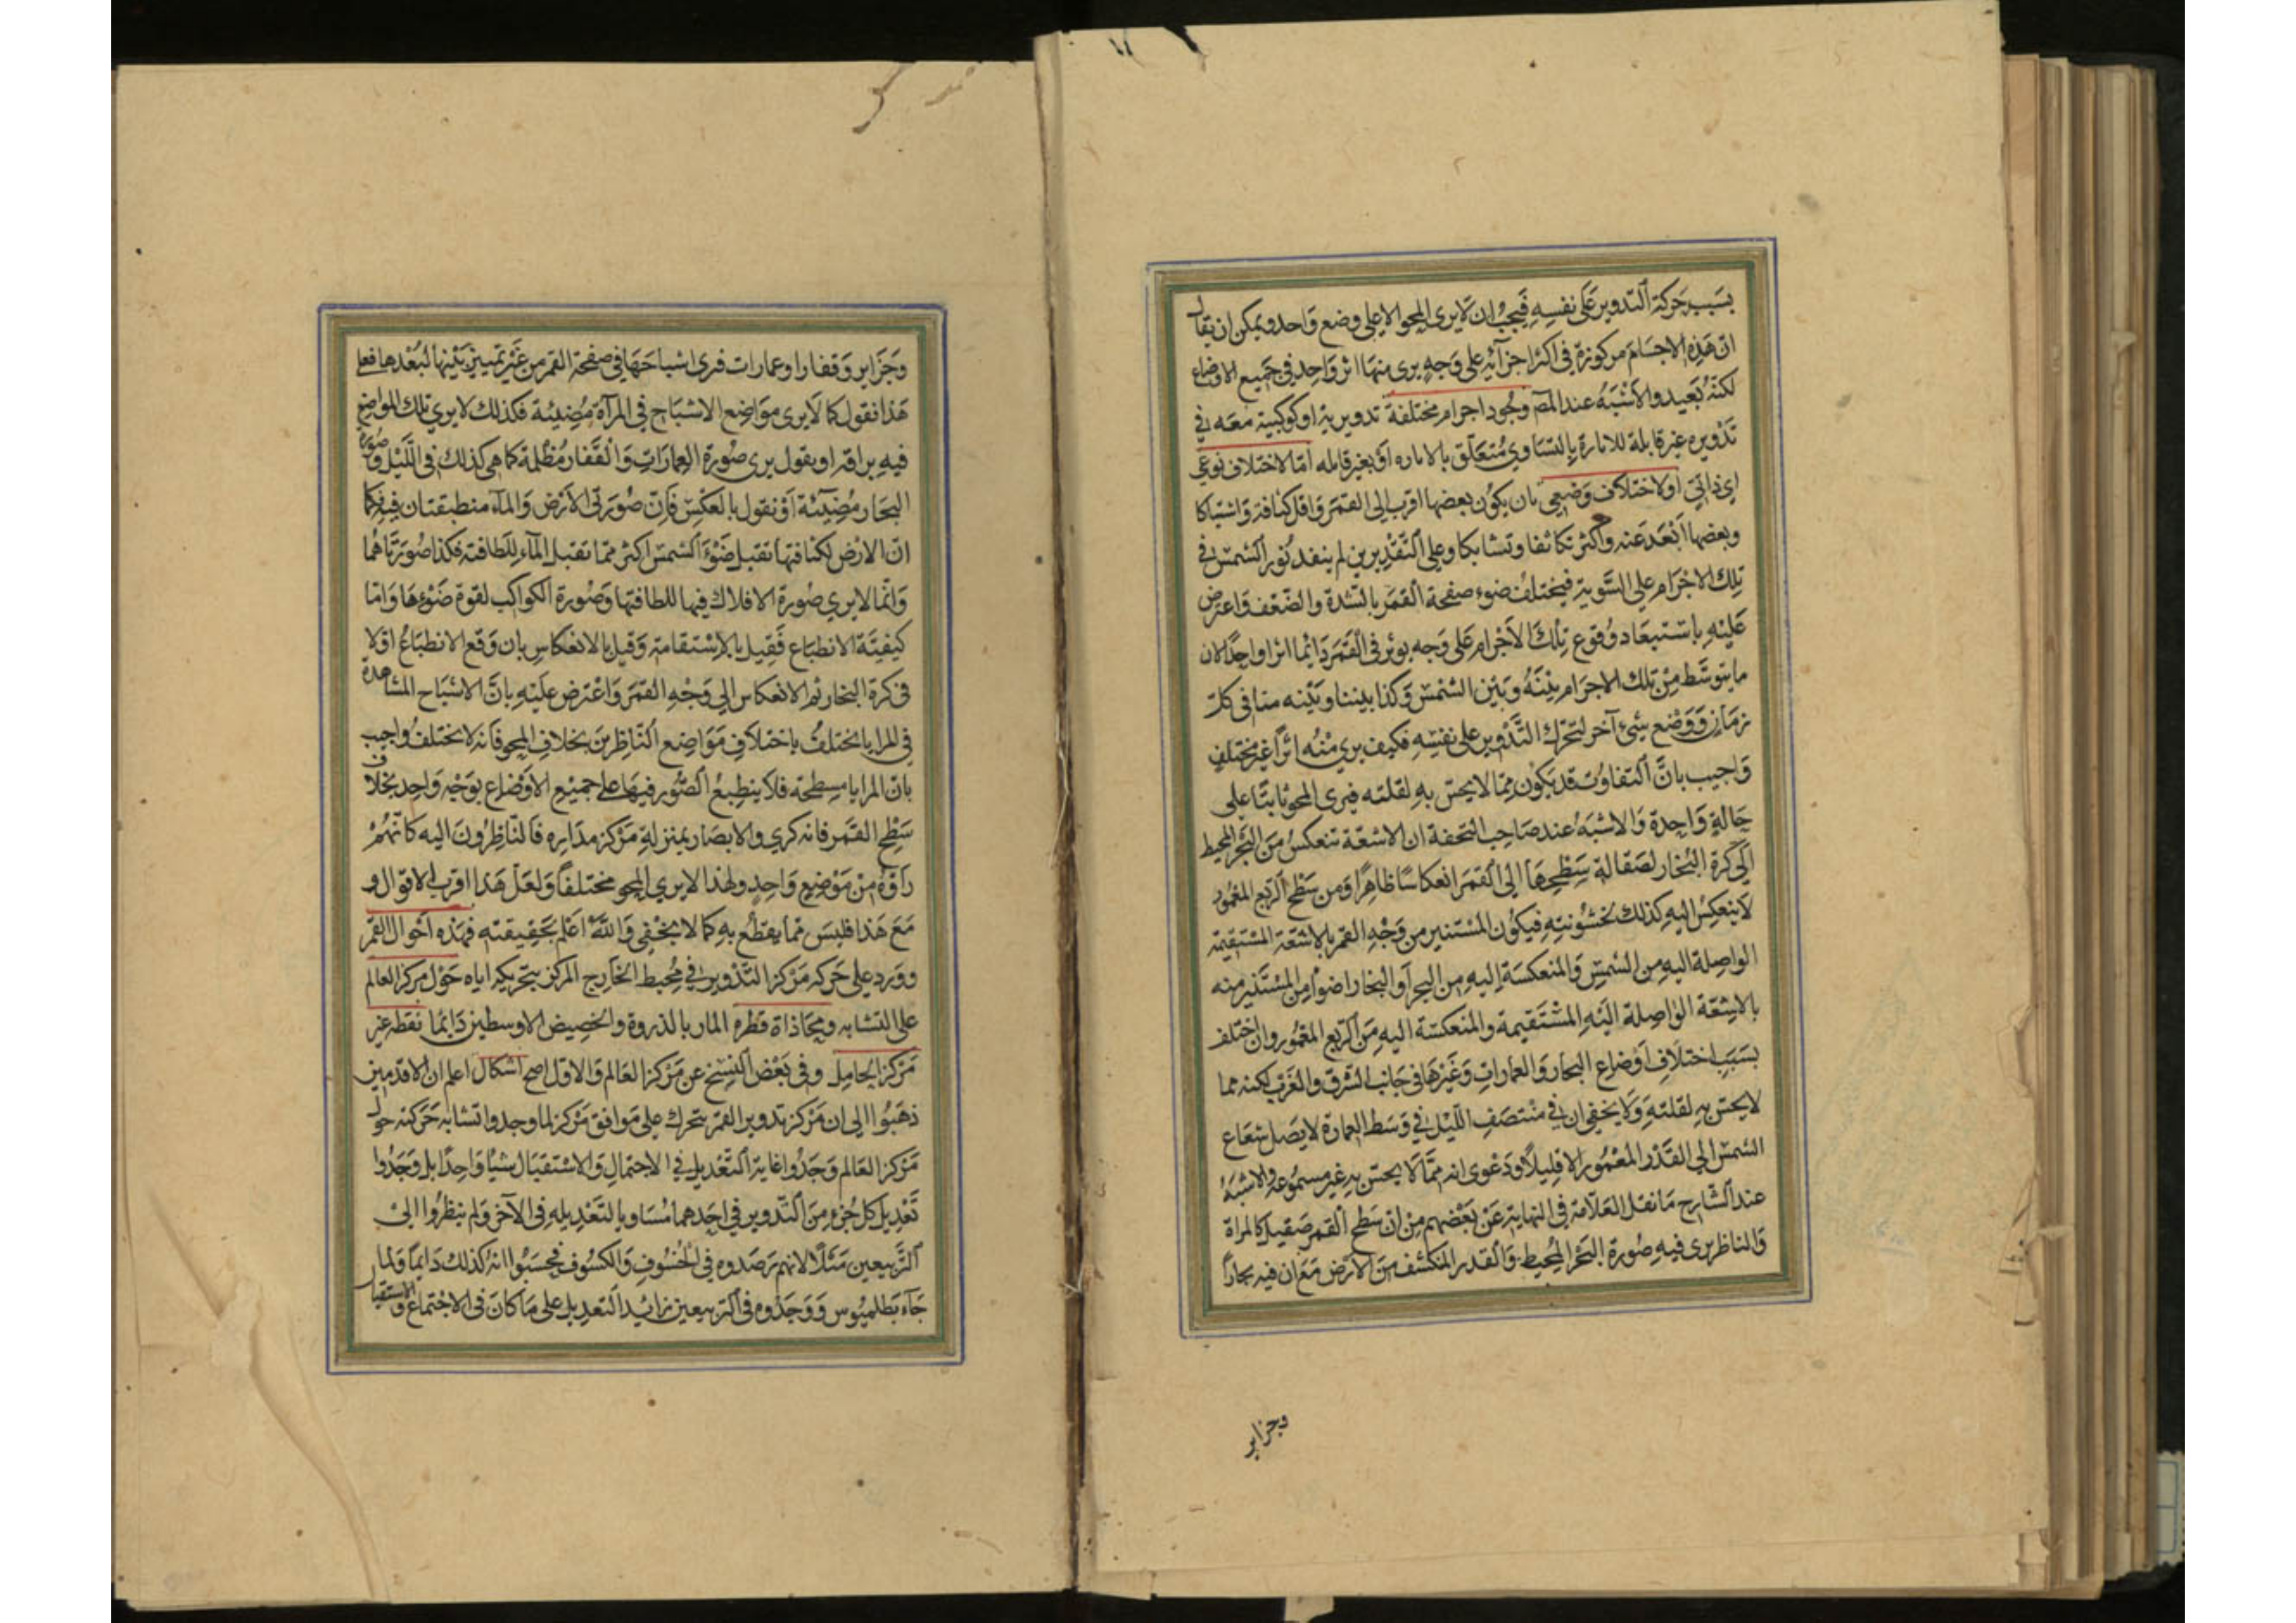 بسَبب حَركة التدوير عَلى نفسِهِ فيَجبُ ان لَا يرى المحو الا على وضع وَاحد ويمكن ان يقال
انّ هَذِهِ الاجسَامَ مركوزة في اكثر اجزآئِهِ على وَجهٍ يرى منهَا اثر وَاحِد في جَميع الاوضاع
لكنّهُ بَعيد والاشبَهُ عند المص وجُود اجرام مختلفة تدويرية او كوكبية معَه في
تدْويره غير قابلة للانارة بالتسَاوي مُتعَلّق بالاناره اوْ بغير قابله امّا لاختلاف نوعي
اي ذاتي اولاختلاف وَضعِي بان يكوُن بعضها اقرب الى القمَر وَاقل كثافة وَاشتباكا
وبعضها اَبْعَدَ عَنه واكثر تكاثفا وتشابكا وعلى التّقدِيرين لم ينفد نُور الشمسْ في
تِلكَ الاجْرَام على السَّوية فيَختلفُ ضوء صفحة القمَر بالشّدة والضّعف وَاعترض
عَليْهِ باسْتبعَاد وُقوع تِلكَ الاَجْرام عَلى وَجه يوثر في القَمَر دَائما اثرا واحِدًا لان
مايتوسَّط مِنْ تلك الاجرام بيْنَهُ وَبَين الشمْس وَكذا بيننا وبَيْنه منا في كلّ
زمَان وَوَضْع شِئ آخر لتحَرّك التَّدْوير على نفسِهِ فكيف يرى مْنهُ اثرًا غير مختلفٍ
وَاجيب بانَّ التفاوُتَ قد يَكوْن مِمّا لا يحسّ به لقلته فيرى المحو ثابتًا على
حَالةٍ وَاحِدة وَالاشبَهُ عند صَاحِب التحفة ان الاشعّة تنعكسُ منَ البَحْر المحيط
الى كرة البُخار لصَقالة سَطْحِهَا الى القمَر انعكاسًا ظاهِرًا وَمن سَطْح الرّبع المعْمُور
لَا ينعكِسُ اليهِ كذلك لخشوُنته فيكوُن المسْتنير من وَجْهِ القمر بالاشعّة المسْتقيمة
الواصِلة اليهِ من الشمسْ وَالمنعكسَة اِليهِ من البحر اَو البخار اضوأ مِن المسْتنير منه
بالاشِعّة الوَاصِلة اليَهِ المسْتَقيمة والمنعكسَة اليهِ مِنَ الرّبع المعْمُور وان اختلف
بسَبَب اختلَافِ اوْضاع البحَار وَالعمارَات وَغيَرْهَا في جَانب الشرق والغَرْب لكنه مما
لا يحسّ به لقلته وَلَا يخفي ان في منْتصَف اللّيْل في وَسَط العمارَة لا يَصل شعَاع
الشمسْ الى القَدْر المعْمُور الا قلِيلًا وَدَعْوى انه ممّا لَا يحسّ به غير مسموُعه والاشبَهُ
عند الشّارح مَا نقل العَلّامَة في النهاية عَنْ بَعْضهم مِنْ انّ سَطح القمر صَقيل كالمراة
وَالناظر يرى فيهِ صُورة البَحْر المُحِيط وَالقدر المنكشف مِنَ الارْض مَعَ ان فيه بحاراً
وجزاير
وَجَزَاير وَقفارا وعمارات فرى اشباحَهَا في صفحة القمر من غَيْر تمييز بَيْنها لبُعْدها فعلى
هَذا نقول كما لَا يرى موَاضع الاشبَاح في المرآة مُضِيئة فكذلك لا يرى تلك المواضع
فيهِ براقة او يقول يرى صُورة العِمارَاتِ وَالقَفار مُظْلمة كما هي كذلك في اللّيْل وَصُورة
البحَار مُضِيئة اوْ نقول بالعكسْ فانّ صُورَتي الاَرْض وَالمآء منطبقتان فيهِ فكما
انّ الارْض لكثافتها تقبل ضَوْءَ الشمسْ اكثر ممّا تقبل المآء للَطافته فكذا صُورَتاهُما
وَانّما لا يرى صُورة الافلاك فيها للطافتها وَصُورة الكواكب لقوة ضَوْئِهَا وَامّا
كيفيّة الانطبَاع فَقِيل بالاِسْتقامة وَقيل بالانعكاس بان وَقع الانطبَاعُ اوّلا
في كرة البخار ثم الانعكاس الى وَجْهِ القمَر وَاعْترض عَليْهِ بانَّ الاشبَاح المشاهدة
في المرايا يختلفُ باختلافِ مَوَاضِع النَّاظِرِينَ بخلافِ المحو فَانه لا يختلفُ واجيب
بانّ المرايا مسطحة فلا ينطِبعُ الصُّور فيهَا على جميْع الاوْضاع بوَجْه وَاحِد بخلاف
سَطْح القَمَر فانه كري والابصَار بمنزلةِ مَرْكز مدَاره فالنّاظِرُونَ اليه كانّهُمْ
رَأوْهُ مِنْ مَوْضع وَاحِدٍ ولهذا لا يرى المحو مختلفاً وَلعَلّ هَذا اقرب الاقوَال و
مَعَ هَذا فليسَ ممّا يقطع بهِ كما لا يخْفي وَاللهُ اَعْلم بحَقِيقته فهذه اَحْوال القمَر
وَوَرد على حَركه مَرْكز التّدْوير في مُحِيط الخَارج المركز بتحريكه اياه حَوْل مَركز العالم
على التشابه ومحَاذاة قطره المار بالذروة والحضيض الاوسطين دَائما نقطه غير
مَرْكز الحامِل وَفي بَعْض النسَخ عن مَرْكز العَالم وَالاوّل اصح اشكال اعلم ان الاقدمين
ذهَبُوا الى ان مَرْكز تدوير القمَر يتحرك على مَوافق مَرْكز لما وجدوا تشابه حَركته حول
مَرْكز العَالم وَجَدُوا غاية التّعْديل في الاجتمال وَالاسْتقبَال شيئا وَاحِدًا بل وَجَدُوا
تَعْديل كل جُزء مِنَ التّدوير في احَدهما مُسَاويا لتَعْدِيلهِ في الآخر وَلم ينظرُوا الىْ
التّرْبيعين مَثلًا لانهم رصَدوه في الخُسُوفِ وَالكسُوف فحَسَبُوا انهُ كذلك دَايماً وَلما
جَآء بَطلميُوس وَوَجَدوُه في التّربيعين زائد التعديل على مَا كانَ في الاجْتماع وَالاستقبال